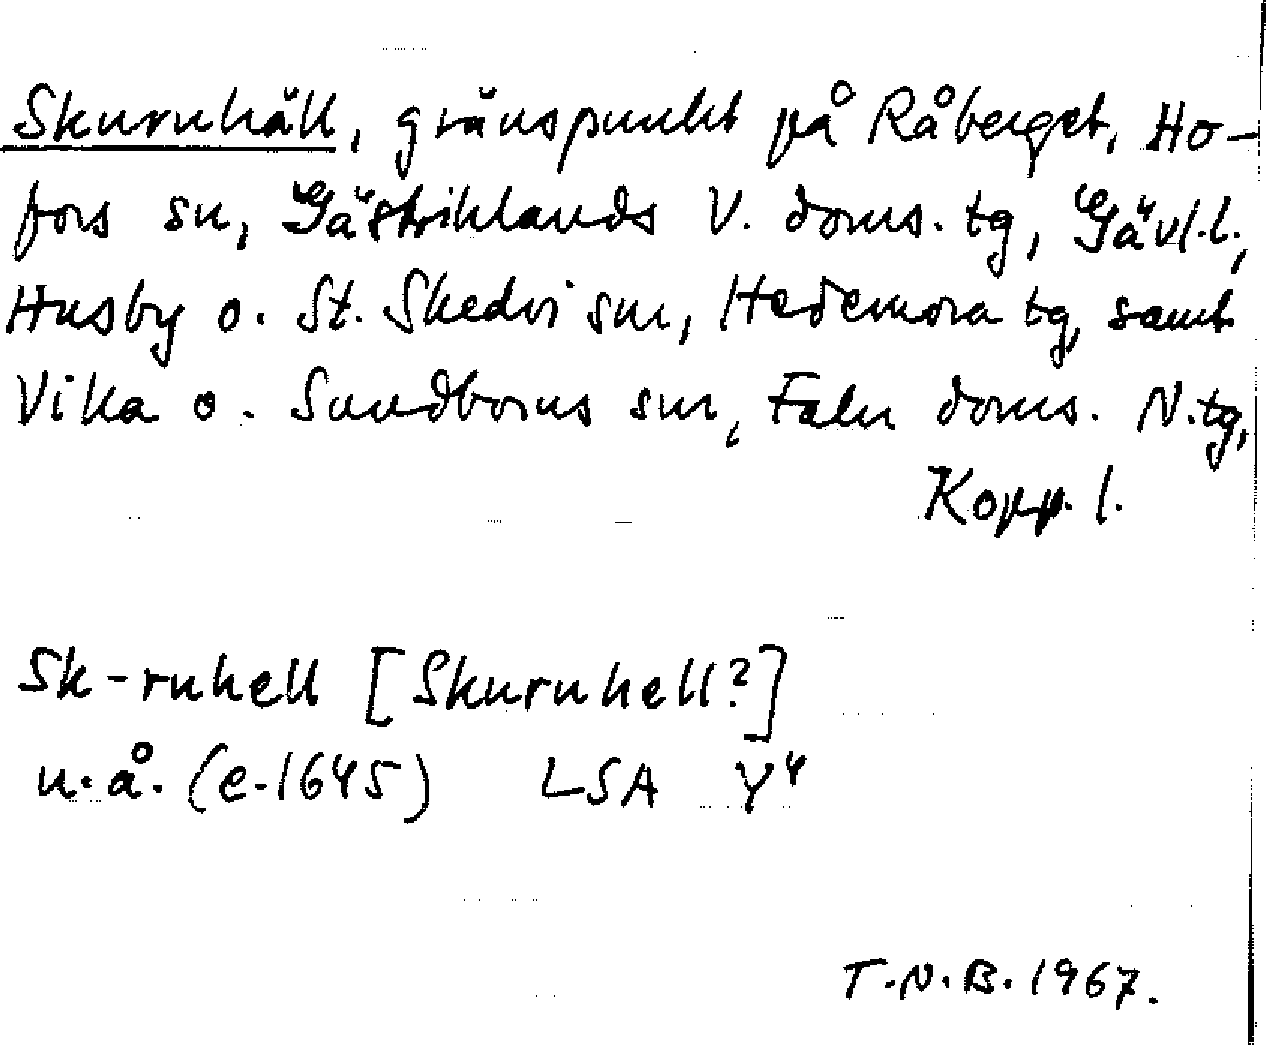 Skuruhäll, gränspunkt på Råberget, Ho-
fors sn, Gästriklands V. doms. tg, Gävl. l.,
Husby o. St. Skedvi snr, Hedemora tg, samt
Vika o. Sundborns snr, Falu doms. N. tg,
Kopp. l.
Sk-ruhell [Skuruhell?]
u. å. (e. 1645) LSA Y4
T.N.B. 1967.